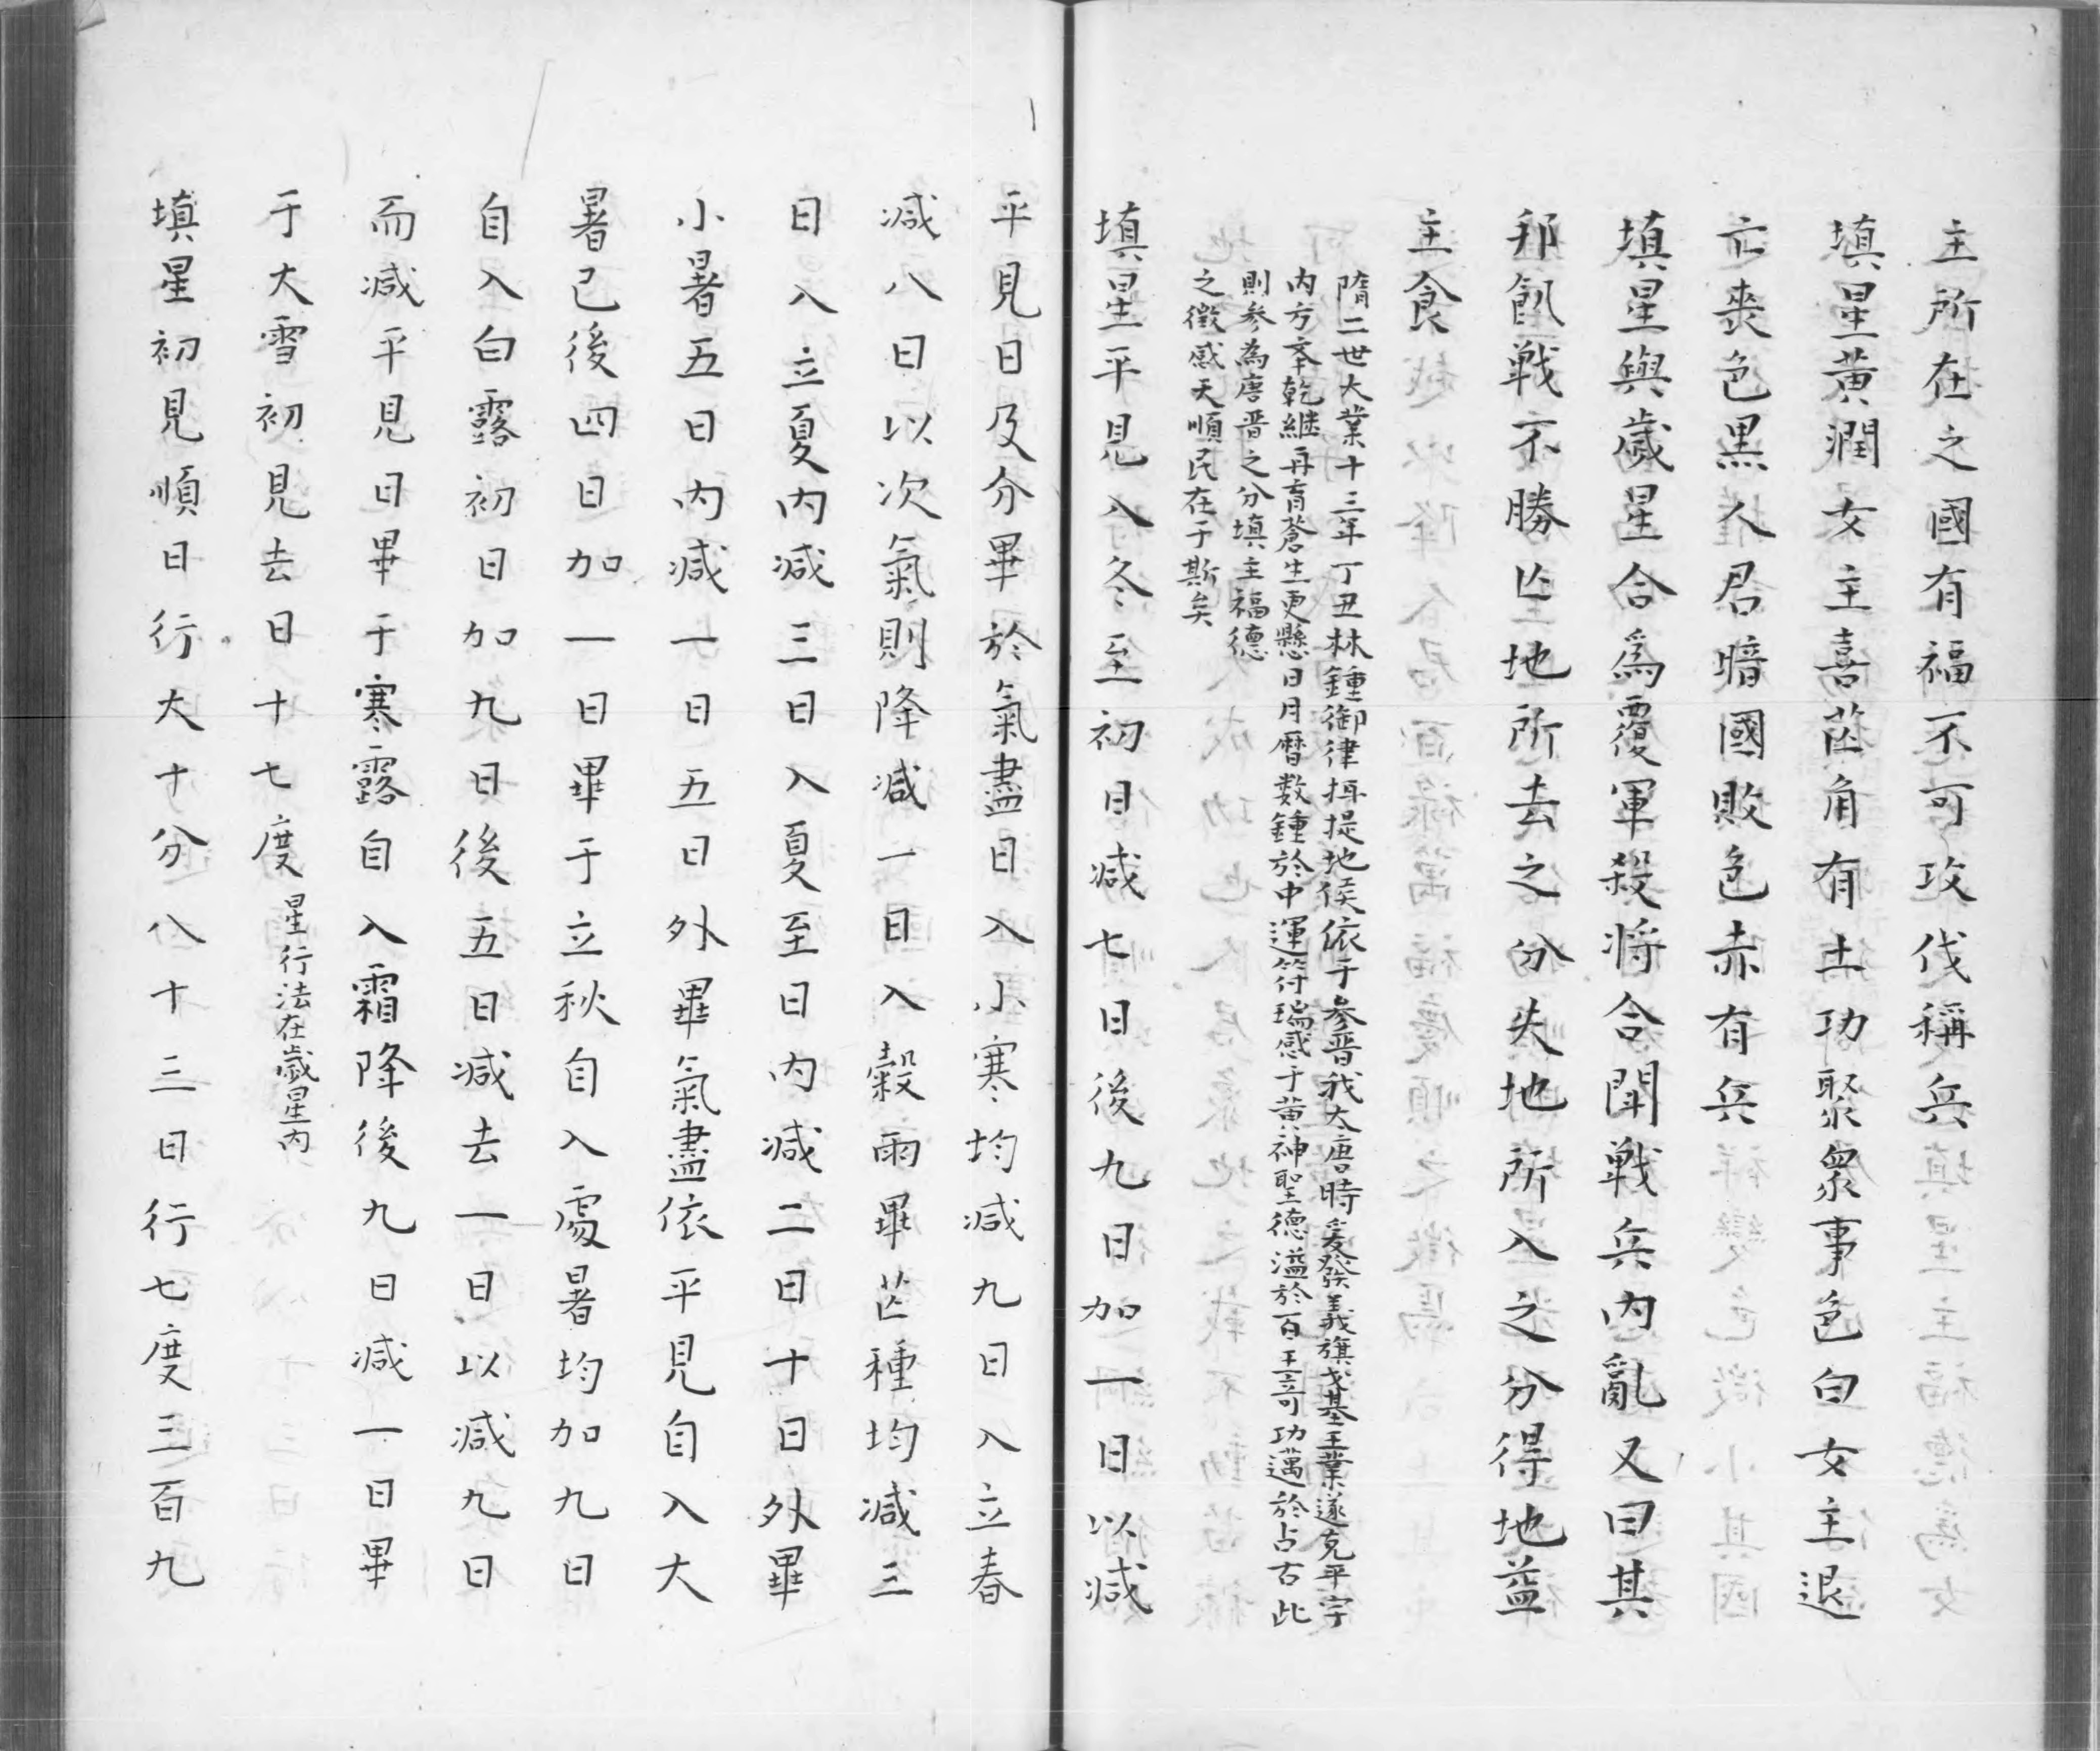 主所在之國有福不可攻伐稱兵
填星黃潤女主喜芒角有土功聚衆事色白女主退
亡喪色黑人君暗國敗色赤有兵
填星與歲星合爲覆軍殺將合鬪戰兵內亂又曰其
邦飢戰不勝亡地所去之分失地所入之分得地益
主食
隋二世大業十三年丁丑林鍾御律 提地侯依于參晋我大唐時爰發義旗 基王業遂克平宇
内方奉乾継再育蒼生更懸日月曆数鍾於中運符瑞感于黃神聖德溢於百王竒功邁於占古此
則參為唐晋之分填主福德
之徵感天順民在于斯矣
填星平見入冬至初日減七日後九日加一日以減
平見日及分畢於氣盡日入小寒均減九日入立春
減八日以次氣則降減一日入穀雨畢芒種均減三
日入立夏內減三日入夏至日內減二日十日外畢
小暑五日內減一日五日外畢氣盡依平見自入大
暑已後四日加一日畢于立秋自入處暑均加九日
自入白露初日加九日後五日減去一日以減九日
而減平見日畢于寒露自入霜降後九日減一日畢
于大雪初見去日十七度 星行法在歲星內
填星初見順日行大十分八十三日行七度三百九